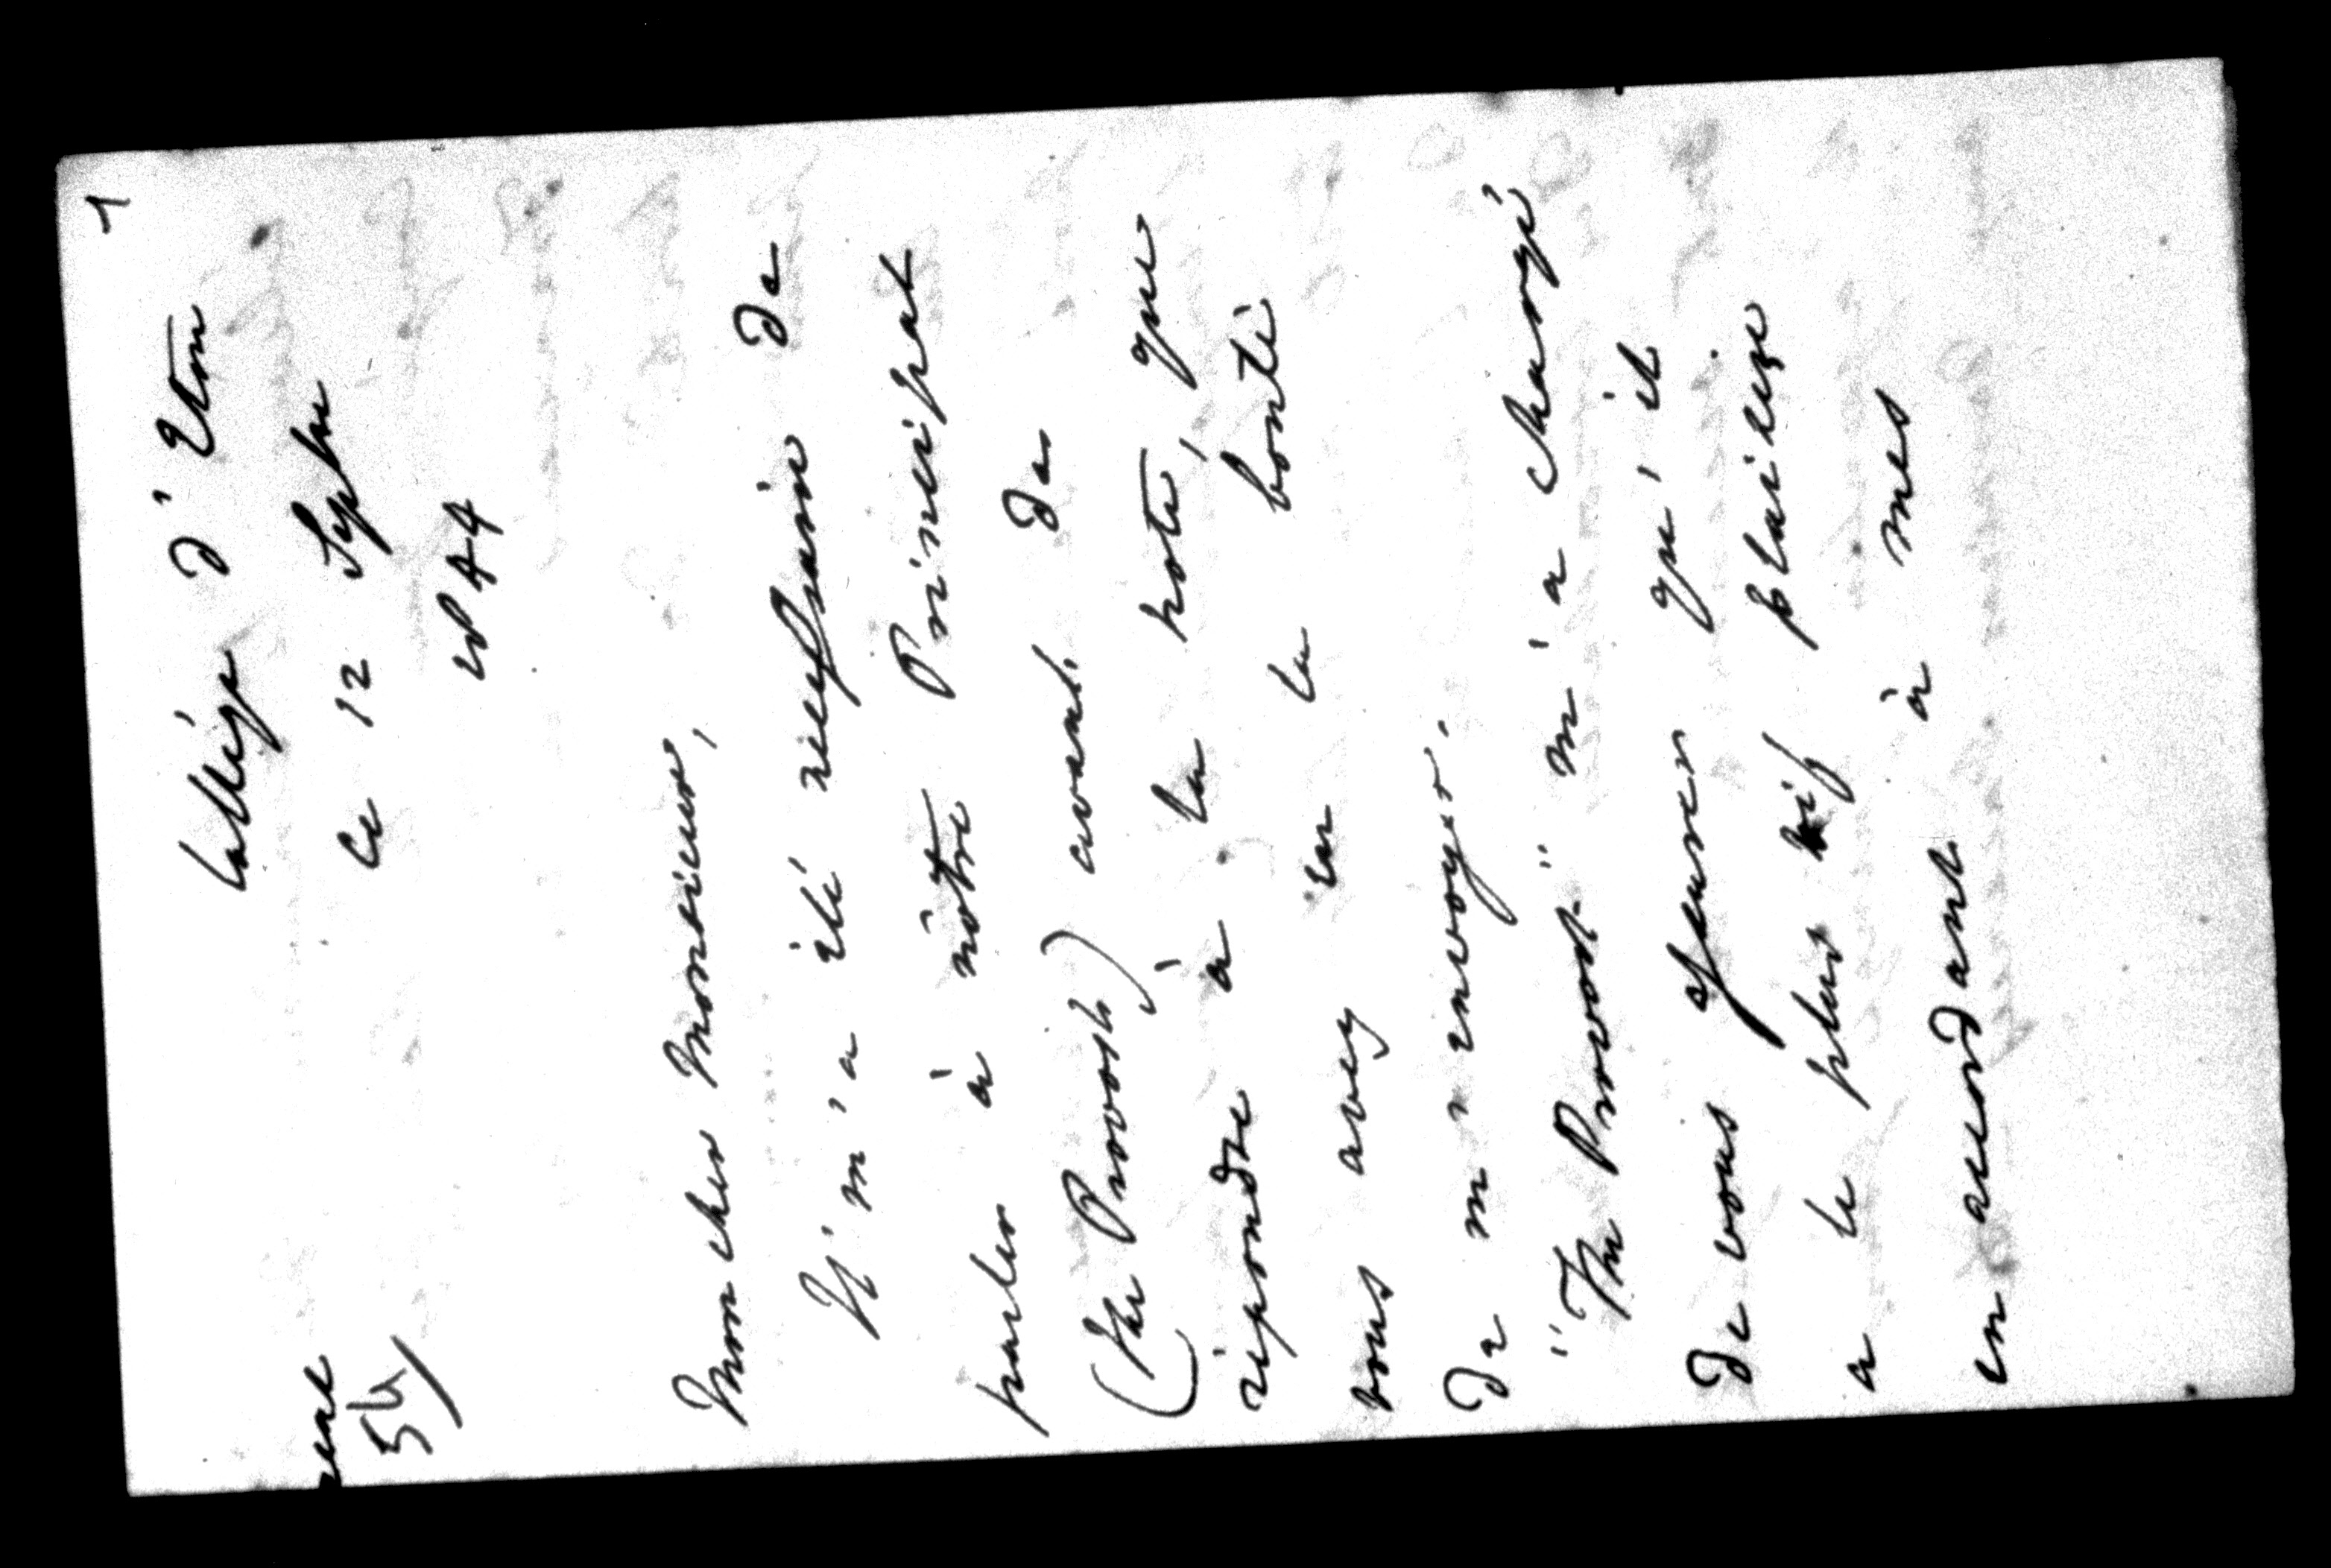 1
Collége d'Eton
Ce 12 Septre
1844
54)
Mon cher Monsieur,
Il m'a été necessaire de
parler à nôtre Principal
(the Provost) avant de
répondre à la note, que
vous avez eu la bonté
de m envoyer.
"The Provost" m'a chargé
de vous assurer qu'il
a le plus vif plaisir
en accordant à mes